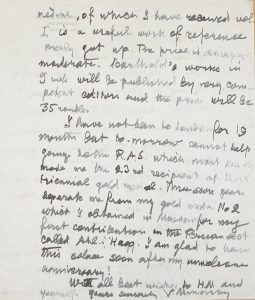 of which I have received vol
I is a useful work of reference
nicely got up. The price is
moderate. Barthold's works in
9 vols will be published by very com-
petent editors and the price will be
35 roubles.
I have not been to London for 19
months but to-morrow cannot help
going to the R.A.S. which
made me the 23rd recipient of their
triennial gold medal. Three years
separate me from my gold medal No 2
which I obtained in Moscow for my
first contribution in the Russian
called Ahl-i Haqq. I am glad to have
this solace soon after my unwelcome
anniversary!
With all best wishes to H.M. and
yourself. Yours sincerely V. Minorsky